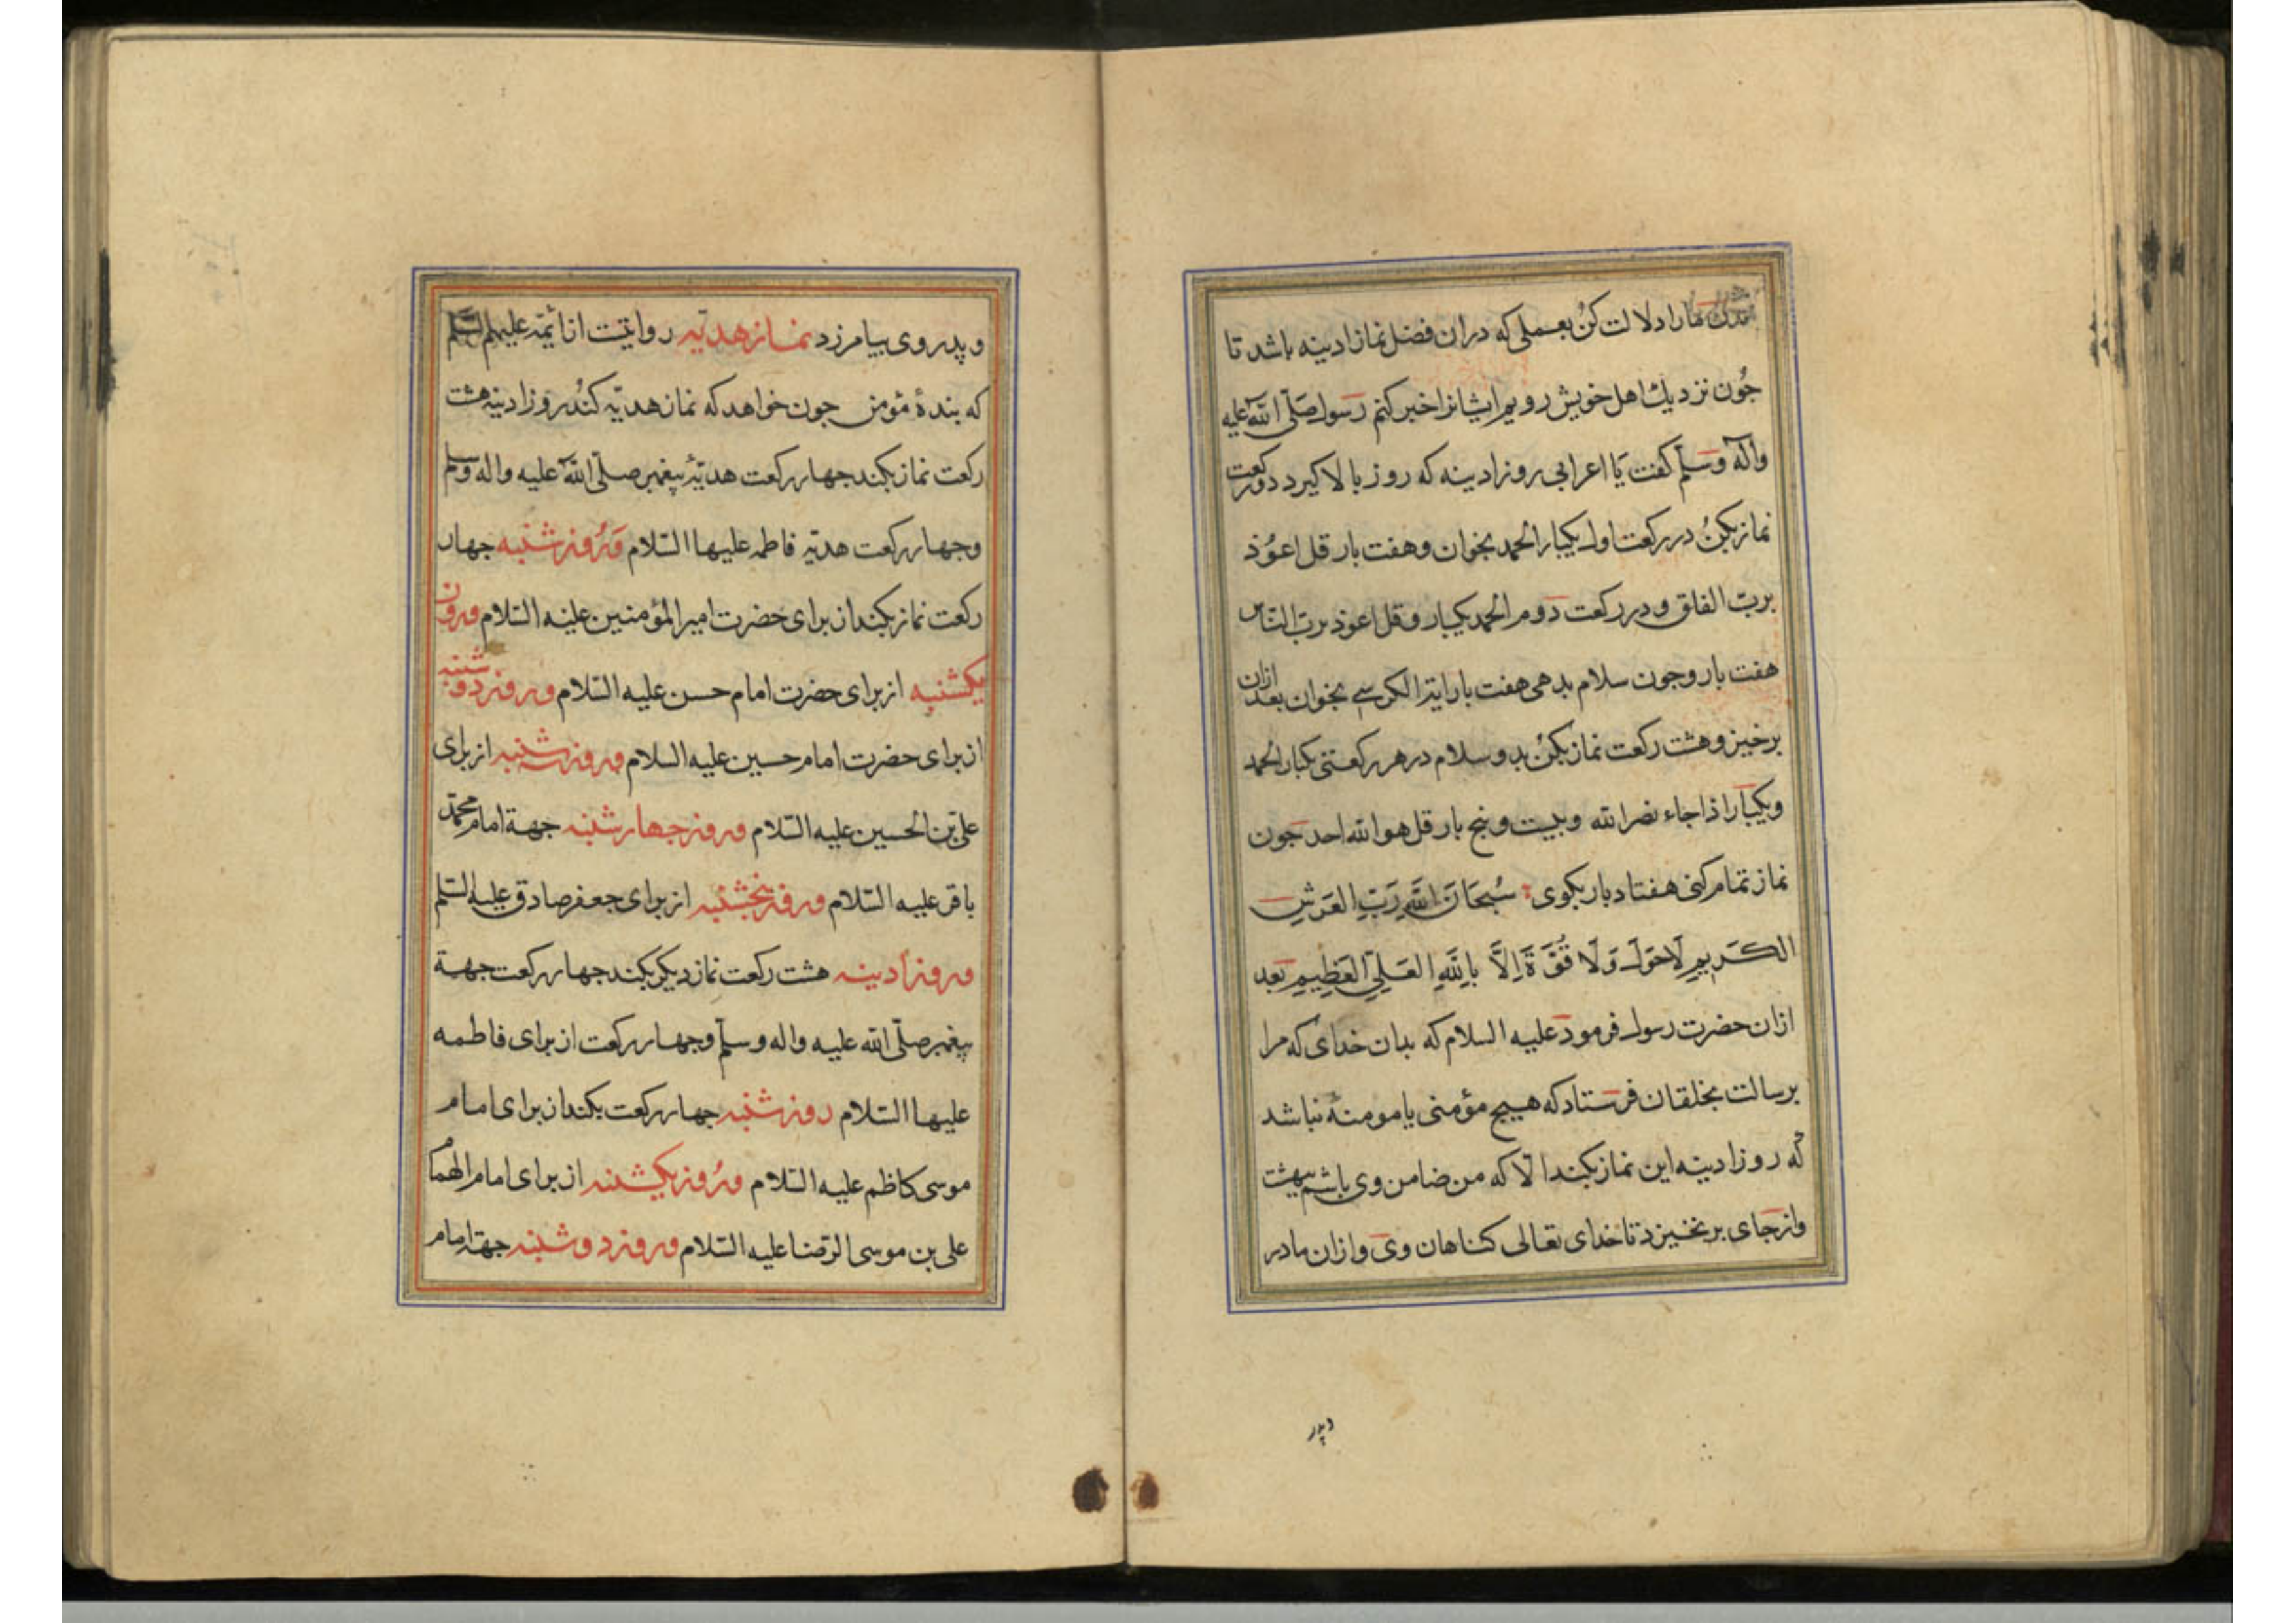 مارا دلالت کن بعملی که دران فضل نماز ادینه باشد تا
جون نزدیك اهل خویش رویم ایشانرا خبر کنم رسول صلّی الله علیه
واله وسلّم کفت یا اعرابی روز ادینه که روز بالا کیرد دورکعت
نماز بکن در رکعت اول یکبار الحمد بخوان وهفت بار قل اعوذ
بربّ الفلق و در رکعت دوم الحمد یکبار وقل اعوذ بربّ النّاس
هفت بار وجون سلام بدهی هفت بار ایة الکرسی بخوان بعد ازان
برخیز وهشت رکعت نماز بکن بدو سلام در هر رکعتی یکبار الحمد
ویکبار اذا جاء نصر الله وبیست وپنج بار قل هو الله احد جون
نماز تمام کنی هفتاد بار بکوی سُبحَانَ اللَّهِ رَبِّ العَرشِ
الکَریمِ لَاحَولَ وَلَا قُوَّةَ اِلَّا بِاللَّهِ العَلِیِّ العَظِیمِ بعد
ازان حضرت رسول فرمود علیه السلام که بدان خدای که مرا
برسالت بخلقان فرستاد که هییج مؤمنی یا مومنهٔ نباشد
که روز ادینه این نماز بکند الّا که من ضامن وی باشم ببهشت
واز جای برنخیزد تا خدای تعالی کناهان وی وازان مادر
وپدر
وپدر وی بیامرزد نماز هدیّه روایتست از ائمّه علیهم السّلم
که بندهٔ مؤمن جون خواهد که نماز هدیّه کند روز ادینه هشت
رکعت نماز بکند جهار رکعت هدیّهٔ پیغمبر صلّی الله علیه واله وسلم
وجهار رکعت هدیّه فاطمه علیها السّلام وروز شنبه جهار
رکعت نماز بکند از برای حضرت امیر المؤمنین علیه السّلام وروز
یکشنبه از برای حضرت امام حسن علیه السّلام وروز دوشنبه
از برای حضرت امام حسین علیه السلام وروز سه شنبه از برای
علی بن الحسین علیه السّلام وروز جهارشنبه جهة امام محمّد
باقر علیه السّلام وروز پنجشنبه از برای جعفر صادق علیه السّلم
وروز ادینه هشت رکعت نماز دیکر بکند جهار رکعت جهة
پیغمبر صلّی الله علیه واله وسلّم وجهار رکعت از برای فاطمه
علیها السّلام روز شنبه جهار رکعت بکند از برای امام
موسی کاظم علیه السّلام وروز یکشنبه از برای امام الهمام
علی بن موسی الرّضا علیه السّلام وروز دوشنبه جهة امام